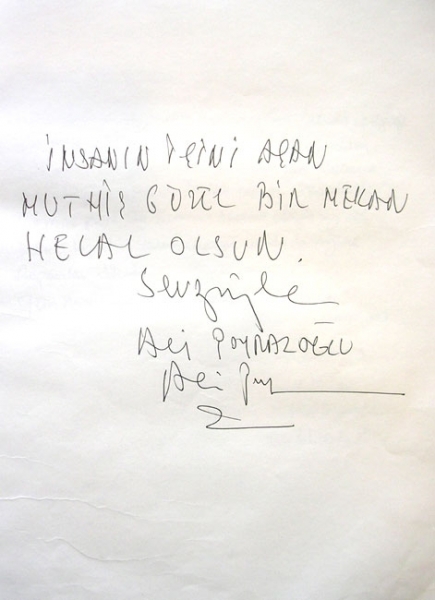 İNSANIN İÇİNİ AÇAN
MUTHİŞ GÜZEL BİR MEKAN
HELAL OLSUN.
Sevgiyle
Ali POYRAZOĞLU
Ali Poy